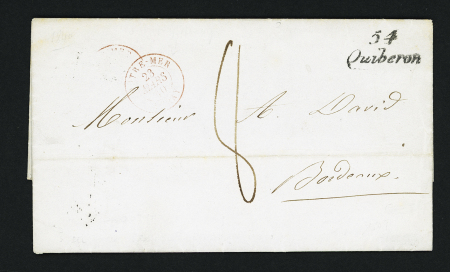 54
Quiberon
TRE-MER
23
MARS
Monsieur A. David
8
Bordeaux.